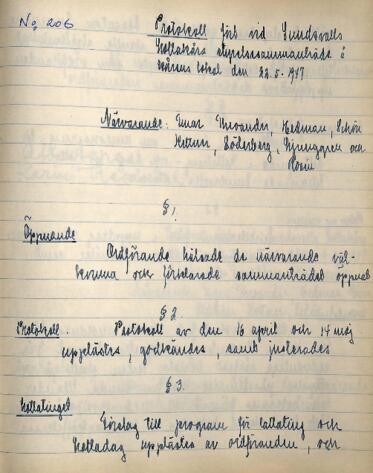 No 206
Protokoll fört vid Sundsvalls
styrelsesammanträde å
lokal den 22.5.1947
Närvarande: Einar Thorander, Hedman, Schön
Söderberg, Ljunggren och
§ 1.
Öppnande
Ordförande hälsade de närvarande väl-
komma och förklarade sammanträdet öppnat
§ 2.
Protokoll. Protokoll av den 16 april och 14 maj
upplästes, godkändes, samt justerades
§ 3.
Förslag till program för och
upplästes av ordföranden, och